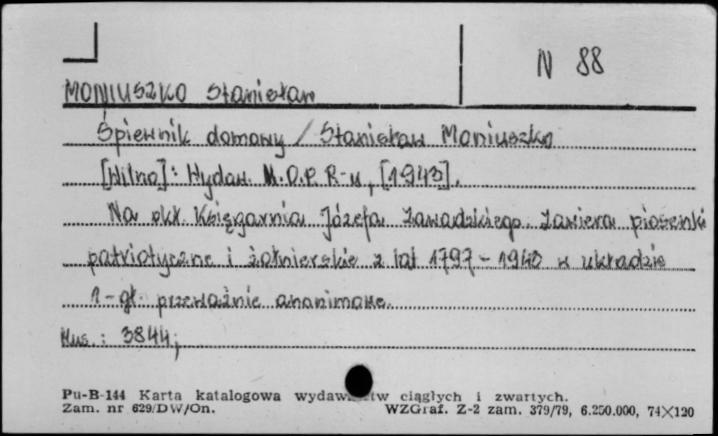 N 88
MONIUSZKO Stanisław
Śpiewnik domowy / Stanisław Moniuszko
[Wilno]: Wydaw. M.O.P.R-u, [1943].
Na okł. Księgarnia Józefa Zawadzkiego. Zawiera piosenki
patriotyczne i żołnierskie z lat 1797-1940 w układzie
1-gł. przeważnie anonimowe.
Mus.: 3844;
Pu-B-144 Karta katalogowa wydawnictw ciągłych i zwartych.
Zam. nr 629/DW/On. WZGraf. Z-2 zam. 379/79, 6.250.000, 74×120